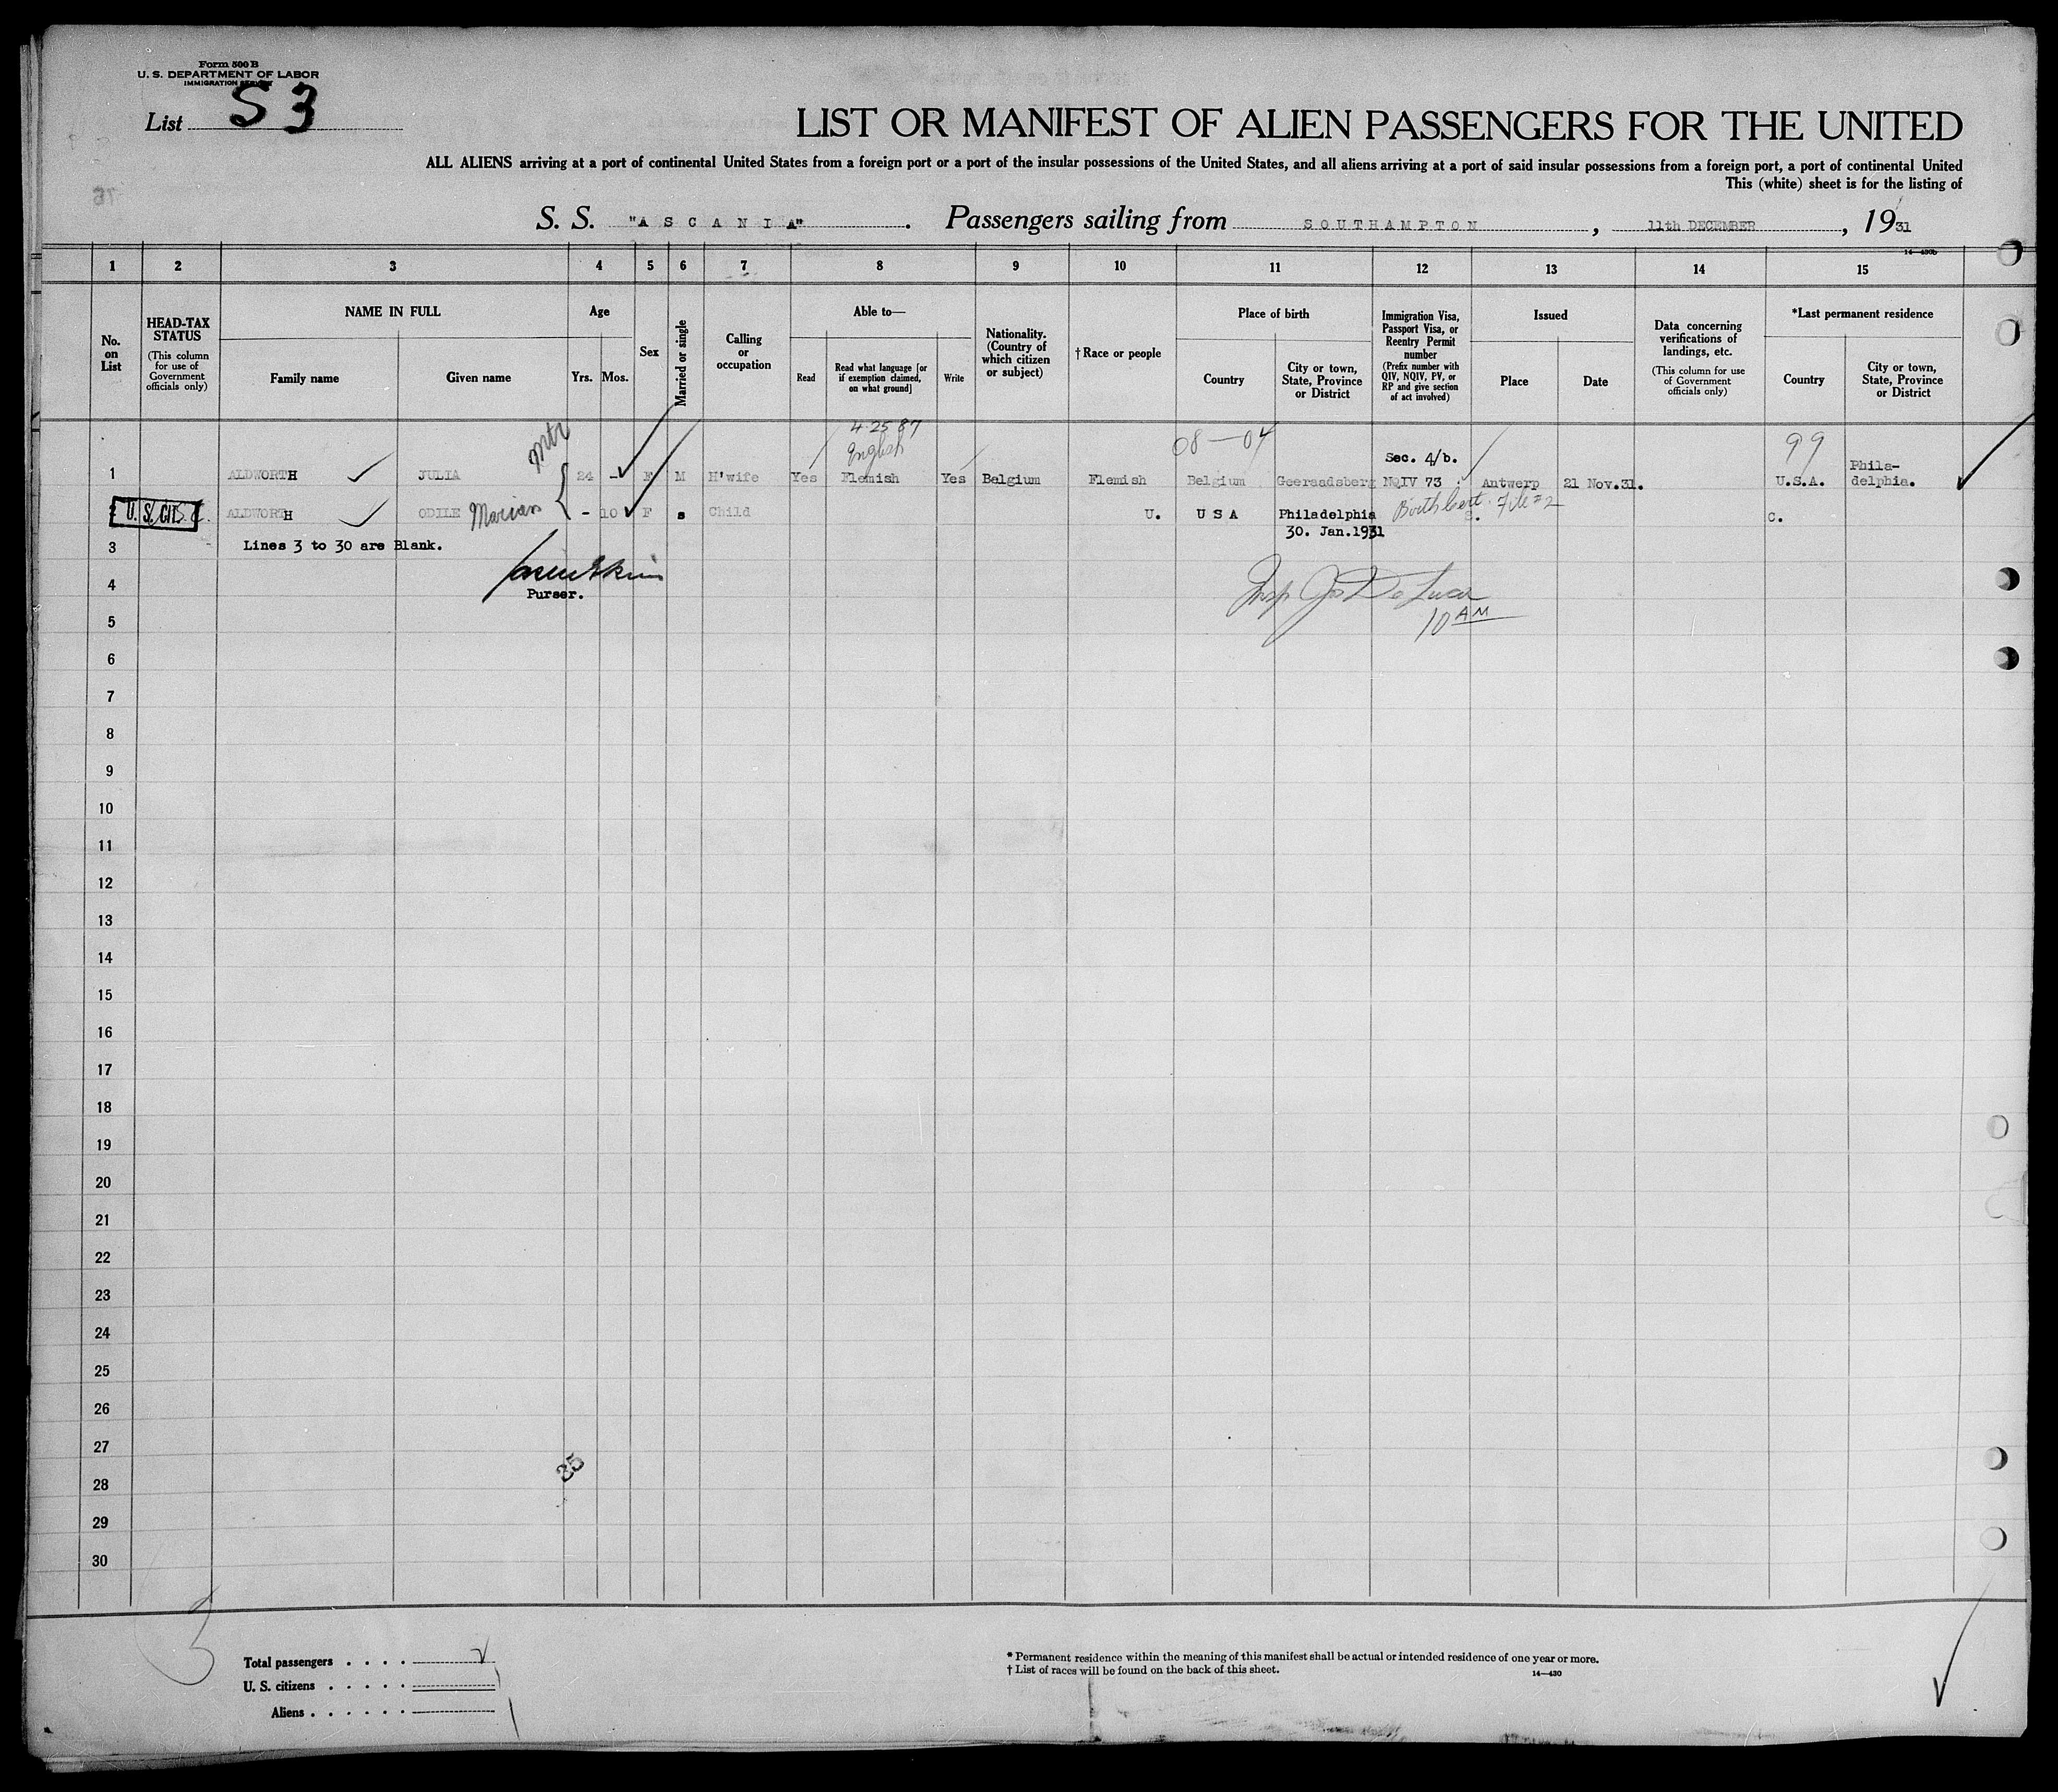 Form 500 B
U. S. DEPARTMENT OF LABOR
IMMIGRATION SERVICE
List S 3
LIST OR MANIFEST OF ALIEN PASSENGERS FOR THE UNITED
ALL ALIENS arriving at a port of continental United States from a foreign port or a port of the insular possessions of the United States, and all aliens arriving at a port of said insular possessions from a foreign port, a port of continental United
This (white) sheet is for the listing of
S. S. "A S C A N I A" . Passengers sailing from S O U T H A M P T O N , 11th DECEMBER , 19 31
14—430b
1 2 3 4 5 6 7 8 9 10 11 12 13 14 15
No. on List
HEAD-TAX STATUS
(This column for use of Government officials only)
NAME IN FULL
Family name
Given name
Age
Yrs. Mos.
Sex
Married or single
Calling or occupation
Able to—
Read
Read what language [or if exemption claimed, on what ground]
Write
Nationality. (Country of which citizen or subject)
†Race or people
Place of birth
Country
City or town, State, Province or District
Immigration Visa, Passport Visa, or Reentry Permit number
(Prefix number with QIV, NQIV, PV, or RP and give section of act involved)
Issued
Place
Date
Data concerning verifications of landings, etc.
(This column for use of Government officials only)
*Last permanent residence
Country
City or town, State, Province or District
4-25 87
English
08—04
99
Sec. 4/b.
1 ALDWORTH JULIA 24 - F M H'wife Yes Flemish Yes Belgium Flemish Belgium Geeraadsberg NQIV 73 Antwerp 21 Nov.31. U.S.A. Phila-
delphia.
2 U.S. CIT. ALDWORTH ODILE Marian - 10 F s Child U. U S A Philadelphia S. C.
Birth Cert. File #2
30. Jan.1931
3 Lines 3 to 30 are Blank.
Purser.
Insp Jos De Luca
10 AM
4
5
6
7
8
9
10
11
12
13
14
15
16
17
18
19
20
21
22
23
24
25
26
27
35
28
29
30
3
Total passengers . . . .
U. S. citizens . . . . .
Aliens . . . . . .
* Permanent residence within the meaning of this manifest shall be actual or intended residence of one year or more.
† List of races will be found on the back of this sheet.
14—430